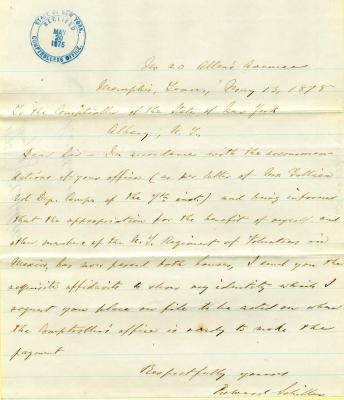 STATE OF NEW YORK,
RECEIVED
MAY
20
1875
COMPTROLLERS OFFICE.
No 20 Allen Avenue
Memphis, Tenn, May 13, 1875
To the Comptroller of the State of New York
Albany, N. Y.
Dear Sir - In accordance with the recommen-
dations of your office (as per letter of
2d Dep. Compt. of the 7th inst.) and being informed
that the appropriation for the benefit of myself and
other members of the N. Y. Regiment of Volunteers in
Mexico, has now passed both houses, I send you the
requisite affidavits to show my identity which I
request you place on file to be acted on when
the Comptroller's office is ready to make the
payment
Respectfully yours
Edward